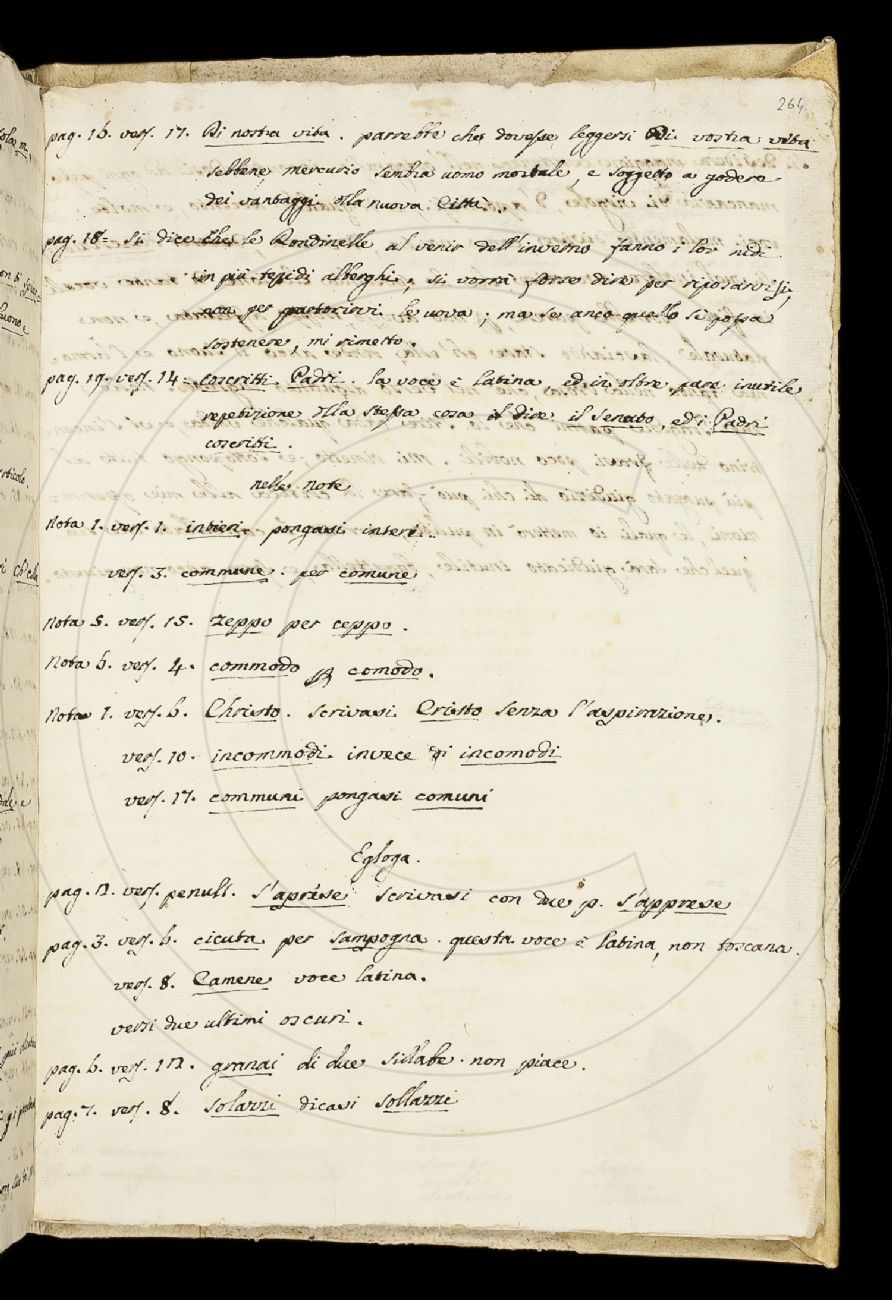 264
pag. 16. vers. 17. Di nostra vita. parrebbe che dovesse leggersi Di vostra vita
sebbene mercurio sembra uomo mortale, e soggetto a godere
dei vantaggi della nuova Città.
pag. 18 = Si dice che le Rondinelle al venir dell'inverno fanno i lor nidi
in più tepidi alberghi; si vorrà forse dire per riposarvisi,
non per partorirvi le uova; ma se anco quello si possa
sostenere, mi rimetto.
pag. 19. vers. 14 = coscritti Padri. la voce è latina, ed in oltre pare inutile
repetizione della stessa cosa il dire il Senato, ed i Padri
coscritti.
nelle note
Nota 1. vers. 1. intieri. pongasi interi.
vers. 3. commune. per comune
Nota 5. vers. 15. zeppo per ceppo.
Nota 6. vers. 4. commodo per comodo.
Nota 7. vers. 6. Christo. scrivasi Cristo senza l'aspirazione.
vers. 10. incommodi. invece di incomodi
vers. 17. communi pongasi comuni
Egloga.
pag. 2. vers. penult. s'aprese scrivasi con due p. s'apprese
pag. 3. vers. 6. cicuta per sampogna. questa voce è latina, non toscana.
vers. 8. Camene voce latina.
versi due ultimi oscuri.
pag. 6. vers. 12. granai di due sillabe. non piace.
pag. 7. vers. 8. solazzi dicasi sollazzi